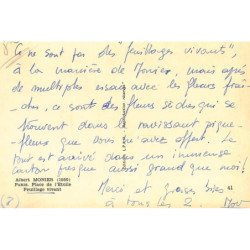 Ce ne sont pas des "feuillages vivants",
à la manière de Monier, mais après
de multiples essais avec les fleurs fraî-
ches, ce sont des fleurs séchées qui se
trouvent dans le ravissant pique-
fleurs que vous m'avez offert. Le
tout est arrivé dans un immense
carton presque aussi grand que moi!
Merci et grosses bises
à tous les 2
Albert MONIER (1950)
Paris. Place de l'Étoile
Feuillage vivant
41
(8)